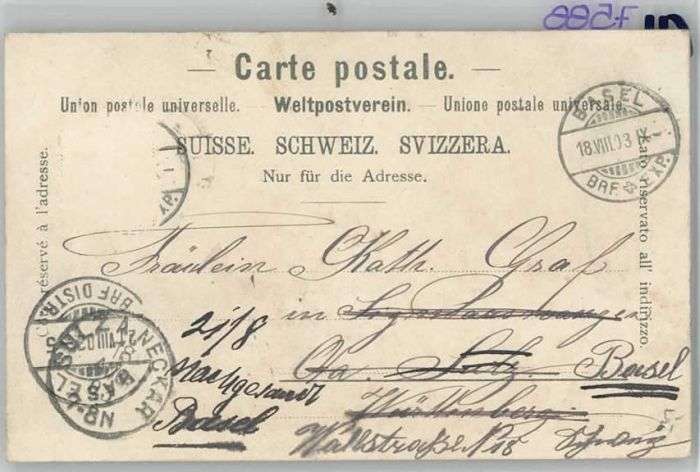 Carte postale.
Union postale universelle. Weltpostverein. Unione postale universale.
SUISSE. SCHWEIZ. SVIZZERA.
Nur für die Adresse.
réservé à l'adresse.
Lato riservato all' indirizzo.
BASEL
18.VIII.03
BRF. EXP.
Fräulein Kath. Graf
in
21/8
Oa. Sulz Basel
nachgesandt
Württenberg
Basel
Wallstraße No 18 Schweiz
BRF. DISTR.
BASEL
NECKAR